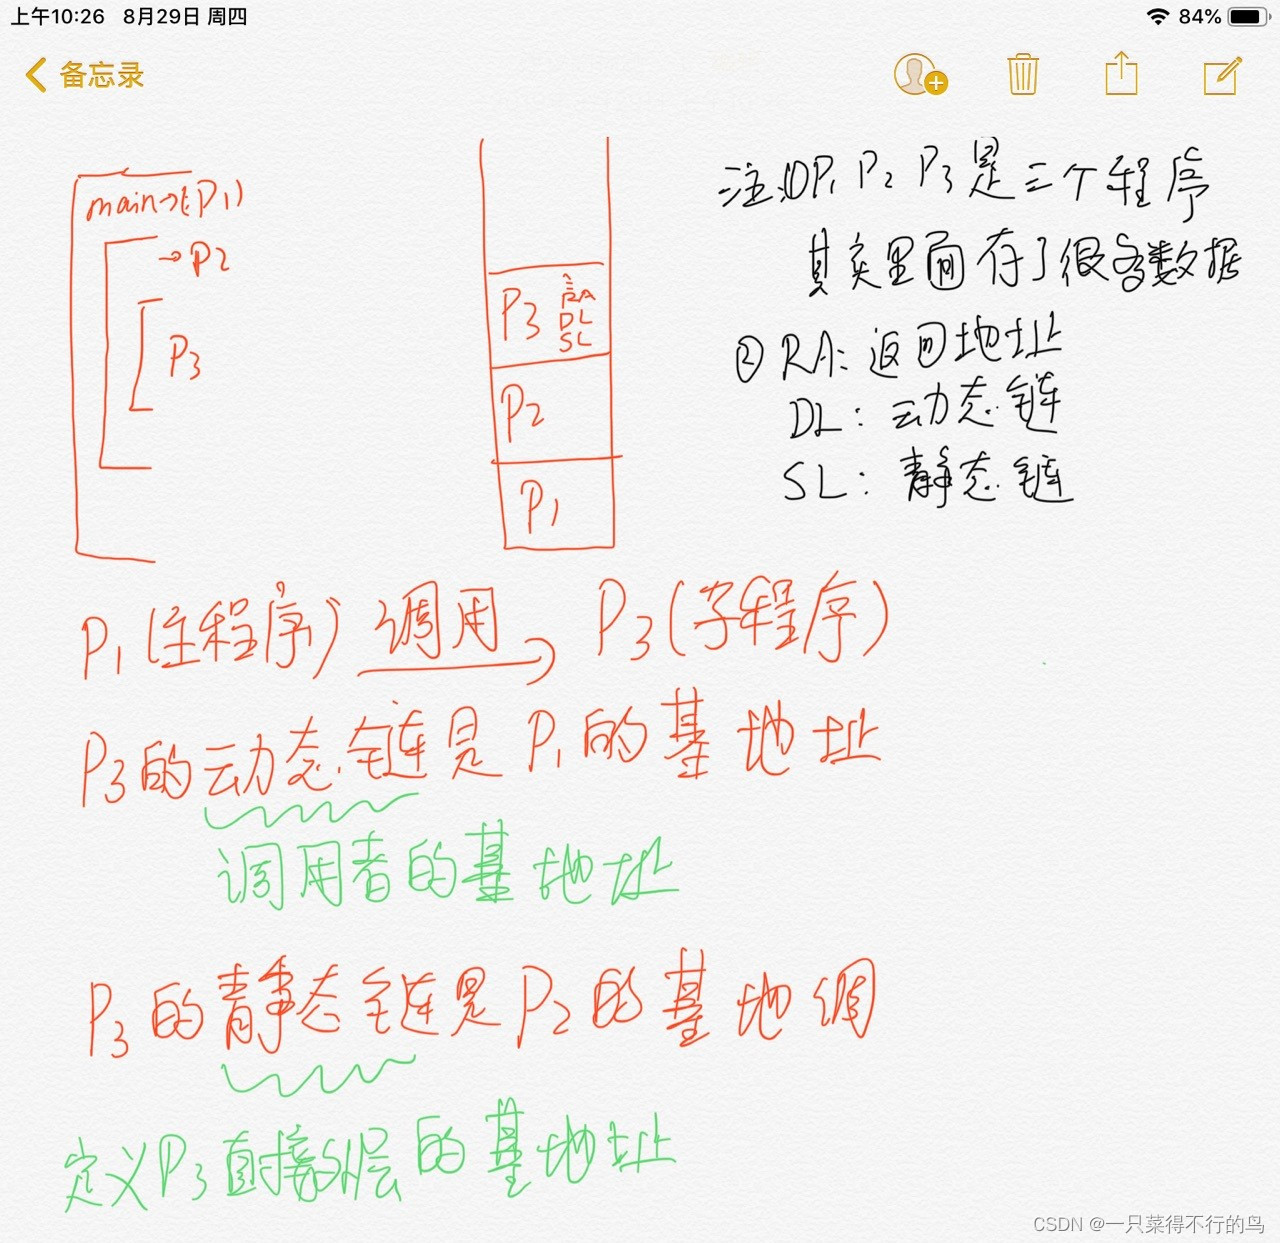 上午10:26 8月29日 周四
84%
备忘录
main→(P1)
→P2
P3
P3 RA
DL
SL
P2
P1
注:①P1 P2 P3是三个程序
其实里面存了很多数据
②RA:返回地址
DL:动态链
SL:静态链
P1(主程序) 调用 P3(子程序)
P3的动态链是P1的基地址
调用者的基地址
P3的静态链是P2的基地调
定义P3直接外层的基地址
CSDN @一只菜得不行的鸟